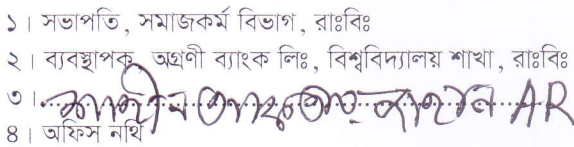 ১। সভাপতি, সমাজকর্ম বিভাগ, রাঃবিঃ
২। ব্যবস্থাপক, অগ্রণী ব্যাংক লিঃ, বিশ্ববিদ্যালয় শাখা, রাঃবিঃ
৩। AR
৪। অফিস নথি